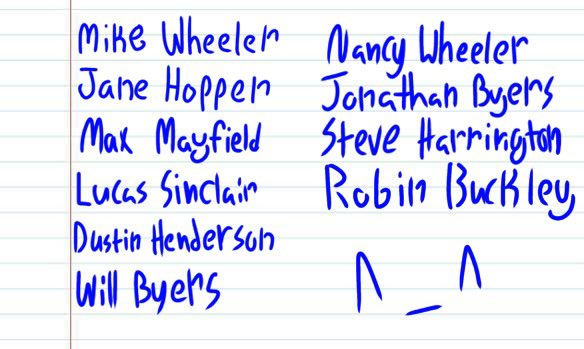 Mike Wheeler
Jane Hopper
Max Mayfield
Lucas Sinclair
Dustin Henderson
Will Byers
Nancy Wheeler
Jonathan Byers
Steve Harrington
Robin Buckley
^_^